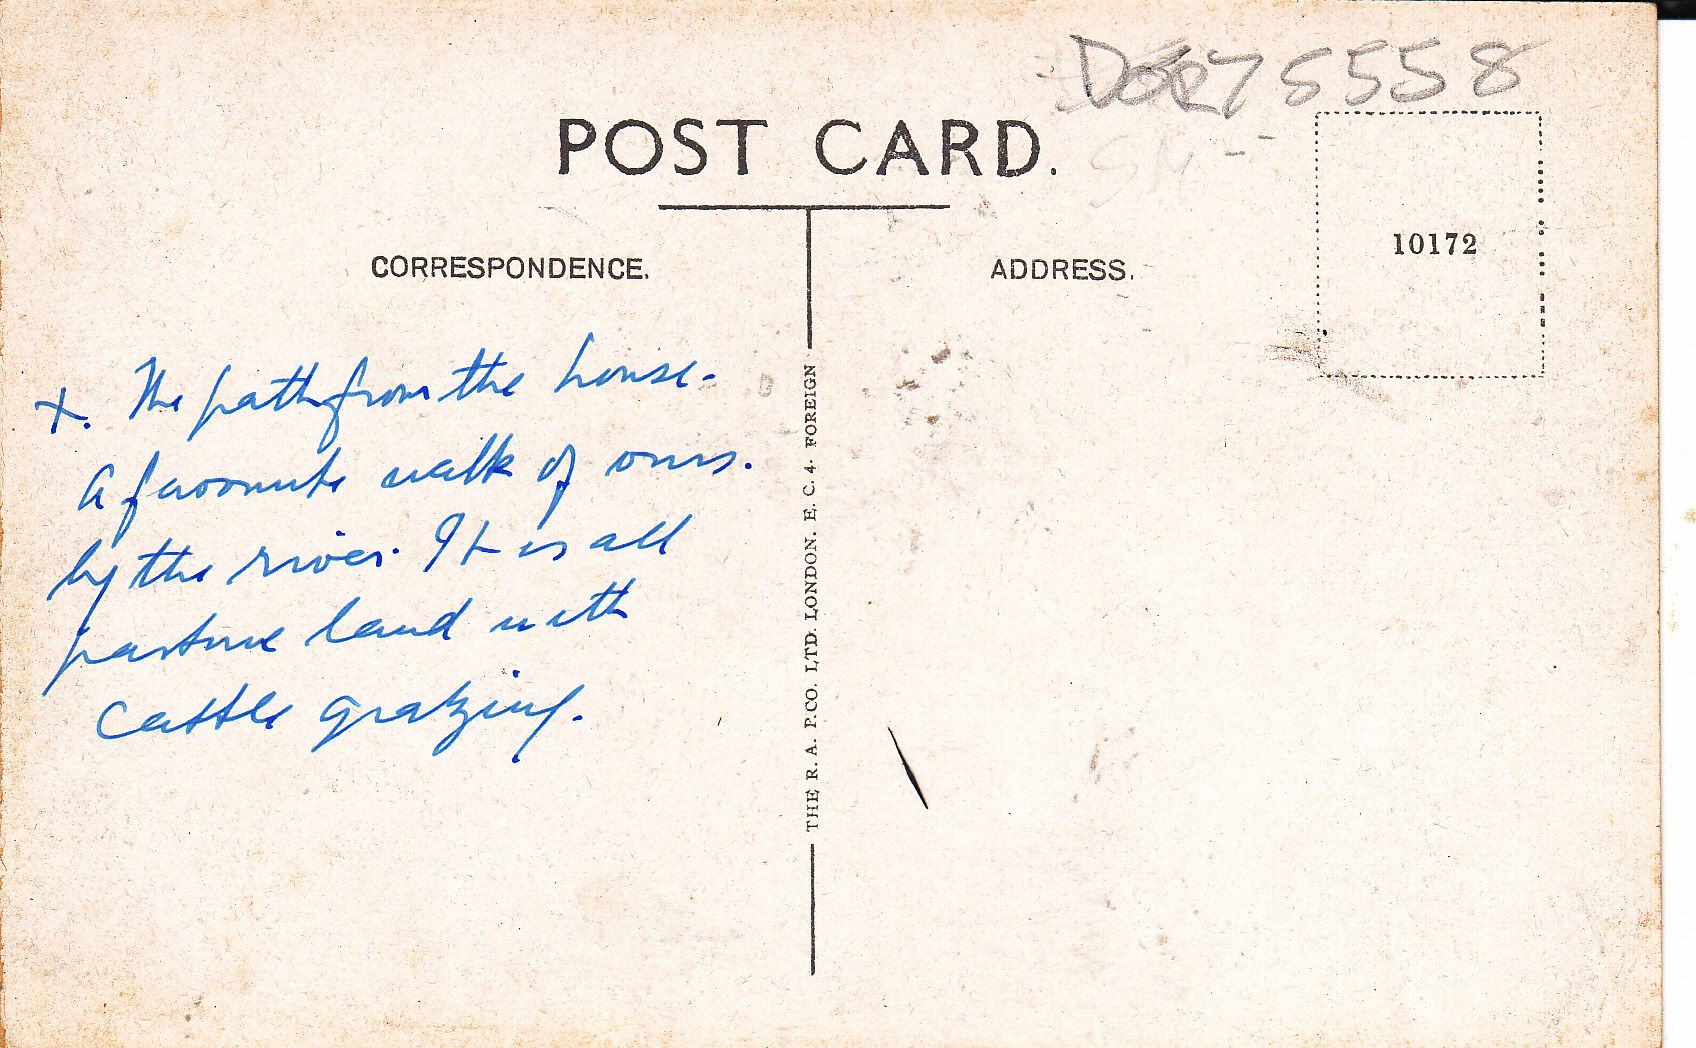 75558
POST CARD.
CORRESPONDENCE.
ADDRESS.
10172
x. The path from the house-
a favourite walk of ours.
by the river. It is all
pasture land with
cattle grazing.
THE R. A. P. CO. LTD. LONDON. E. C. 4. FOREIGN